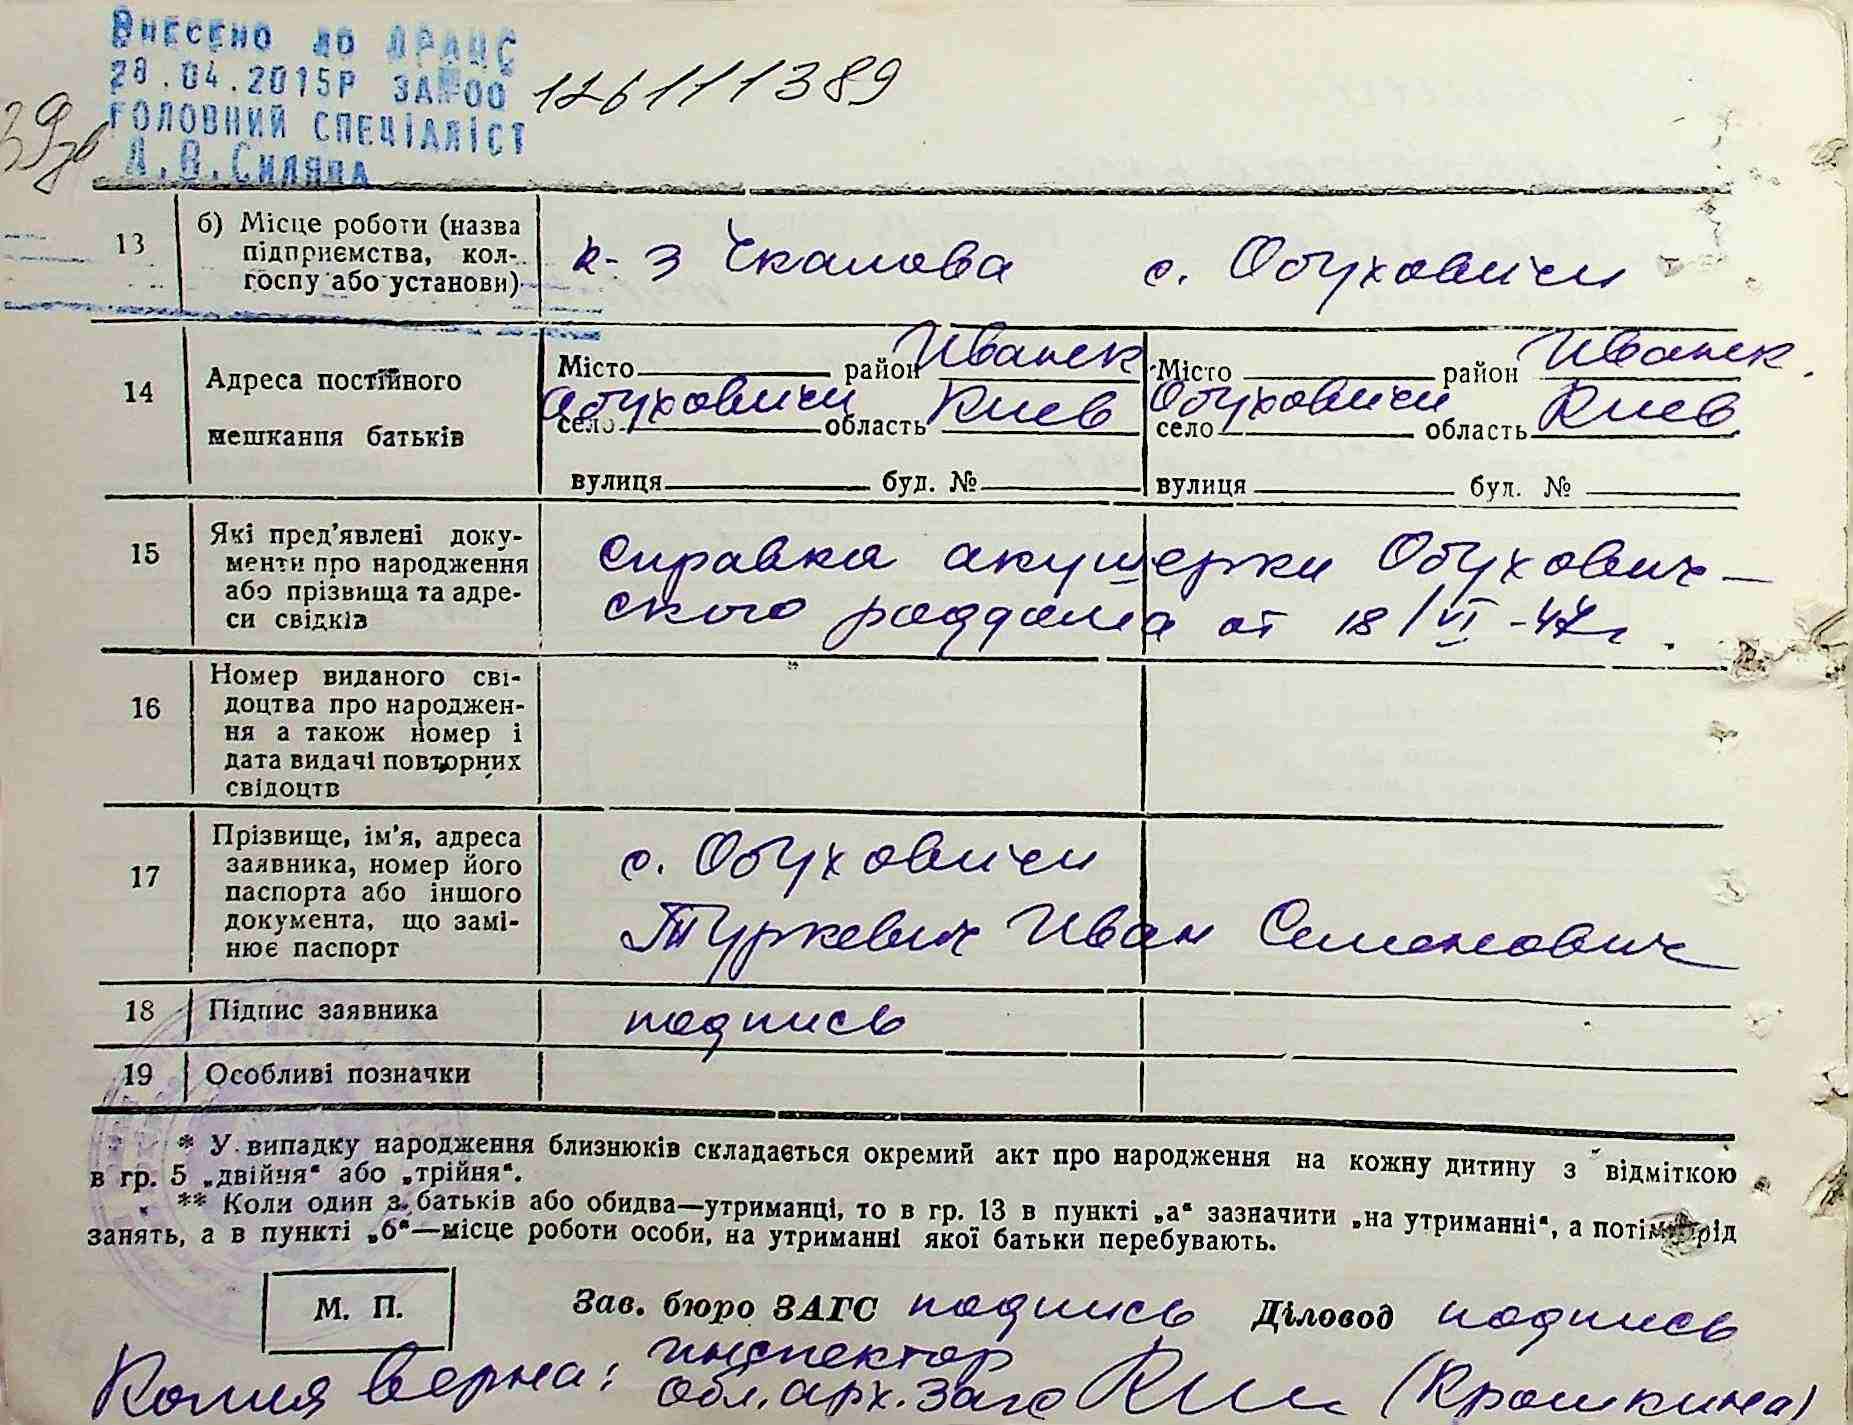 Внесено до ДРАЦС
28.04.2015р за №00 126111389
Головний спеціаліст
А.В.Силяпа
13 б) Місце роботи (назва підприємства, кол-
госпу або установи) к-з Чкалова с. Обуховичи
14 Адреса постійного мешкання батьків
Місто район Иванк Місто район Иванк.
село Обуховичи область Киев село Обуховичи область Киев
вулиця буд. № вулиця буд. №
15 Які пред'явлені доку-
менти про народження
або прізвища та адре-
си свідків
Справка акушерки Обухович-
ского роддома от 18/VI-47г.
16 Номер виданого сві-
доцтва про народжен-
ня а також номер і
дата видачі повторних
свідоцтв
17 Прізвище, ім'я, адреса
заявника, номер його
паспорта або іншого
документа, що замі-
нює паспорт
с. Обуховичи
Туркевич Иван Семенович
18 Підпис заявника подпись
19 Особливі позначки
* У випадку народження близнюків складається окремий акт про народження на кожну дитину з відміткою
в гр. 5 „двійня“ або „трійня“.
** Коли один з батьків або обидва—утриманці, то в гр. 13 в пункті „а“ зазначити „на утриманні“, а потім рід
занять, а в пункті „б“—місце роботи особи, на утриманні якої батьки перебувають.
М. П. Зав. бюро ЗАГС подпись Діловод подпись
Копия верна: инспектор
обл. арх. Загс (Крошкина)